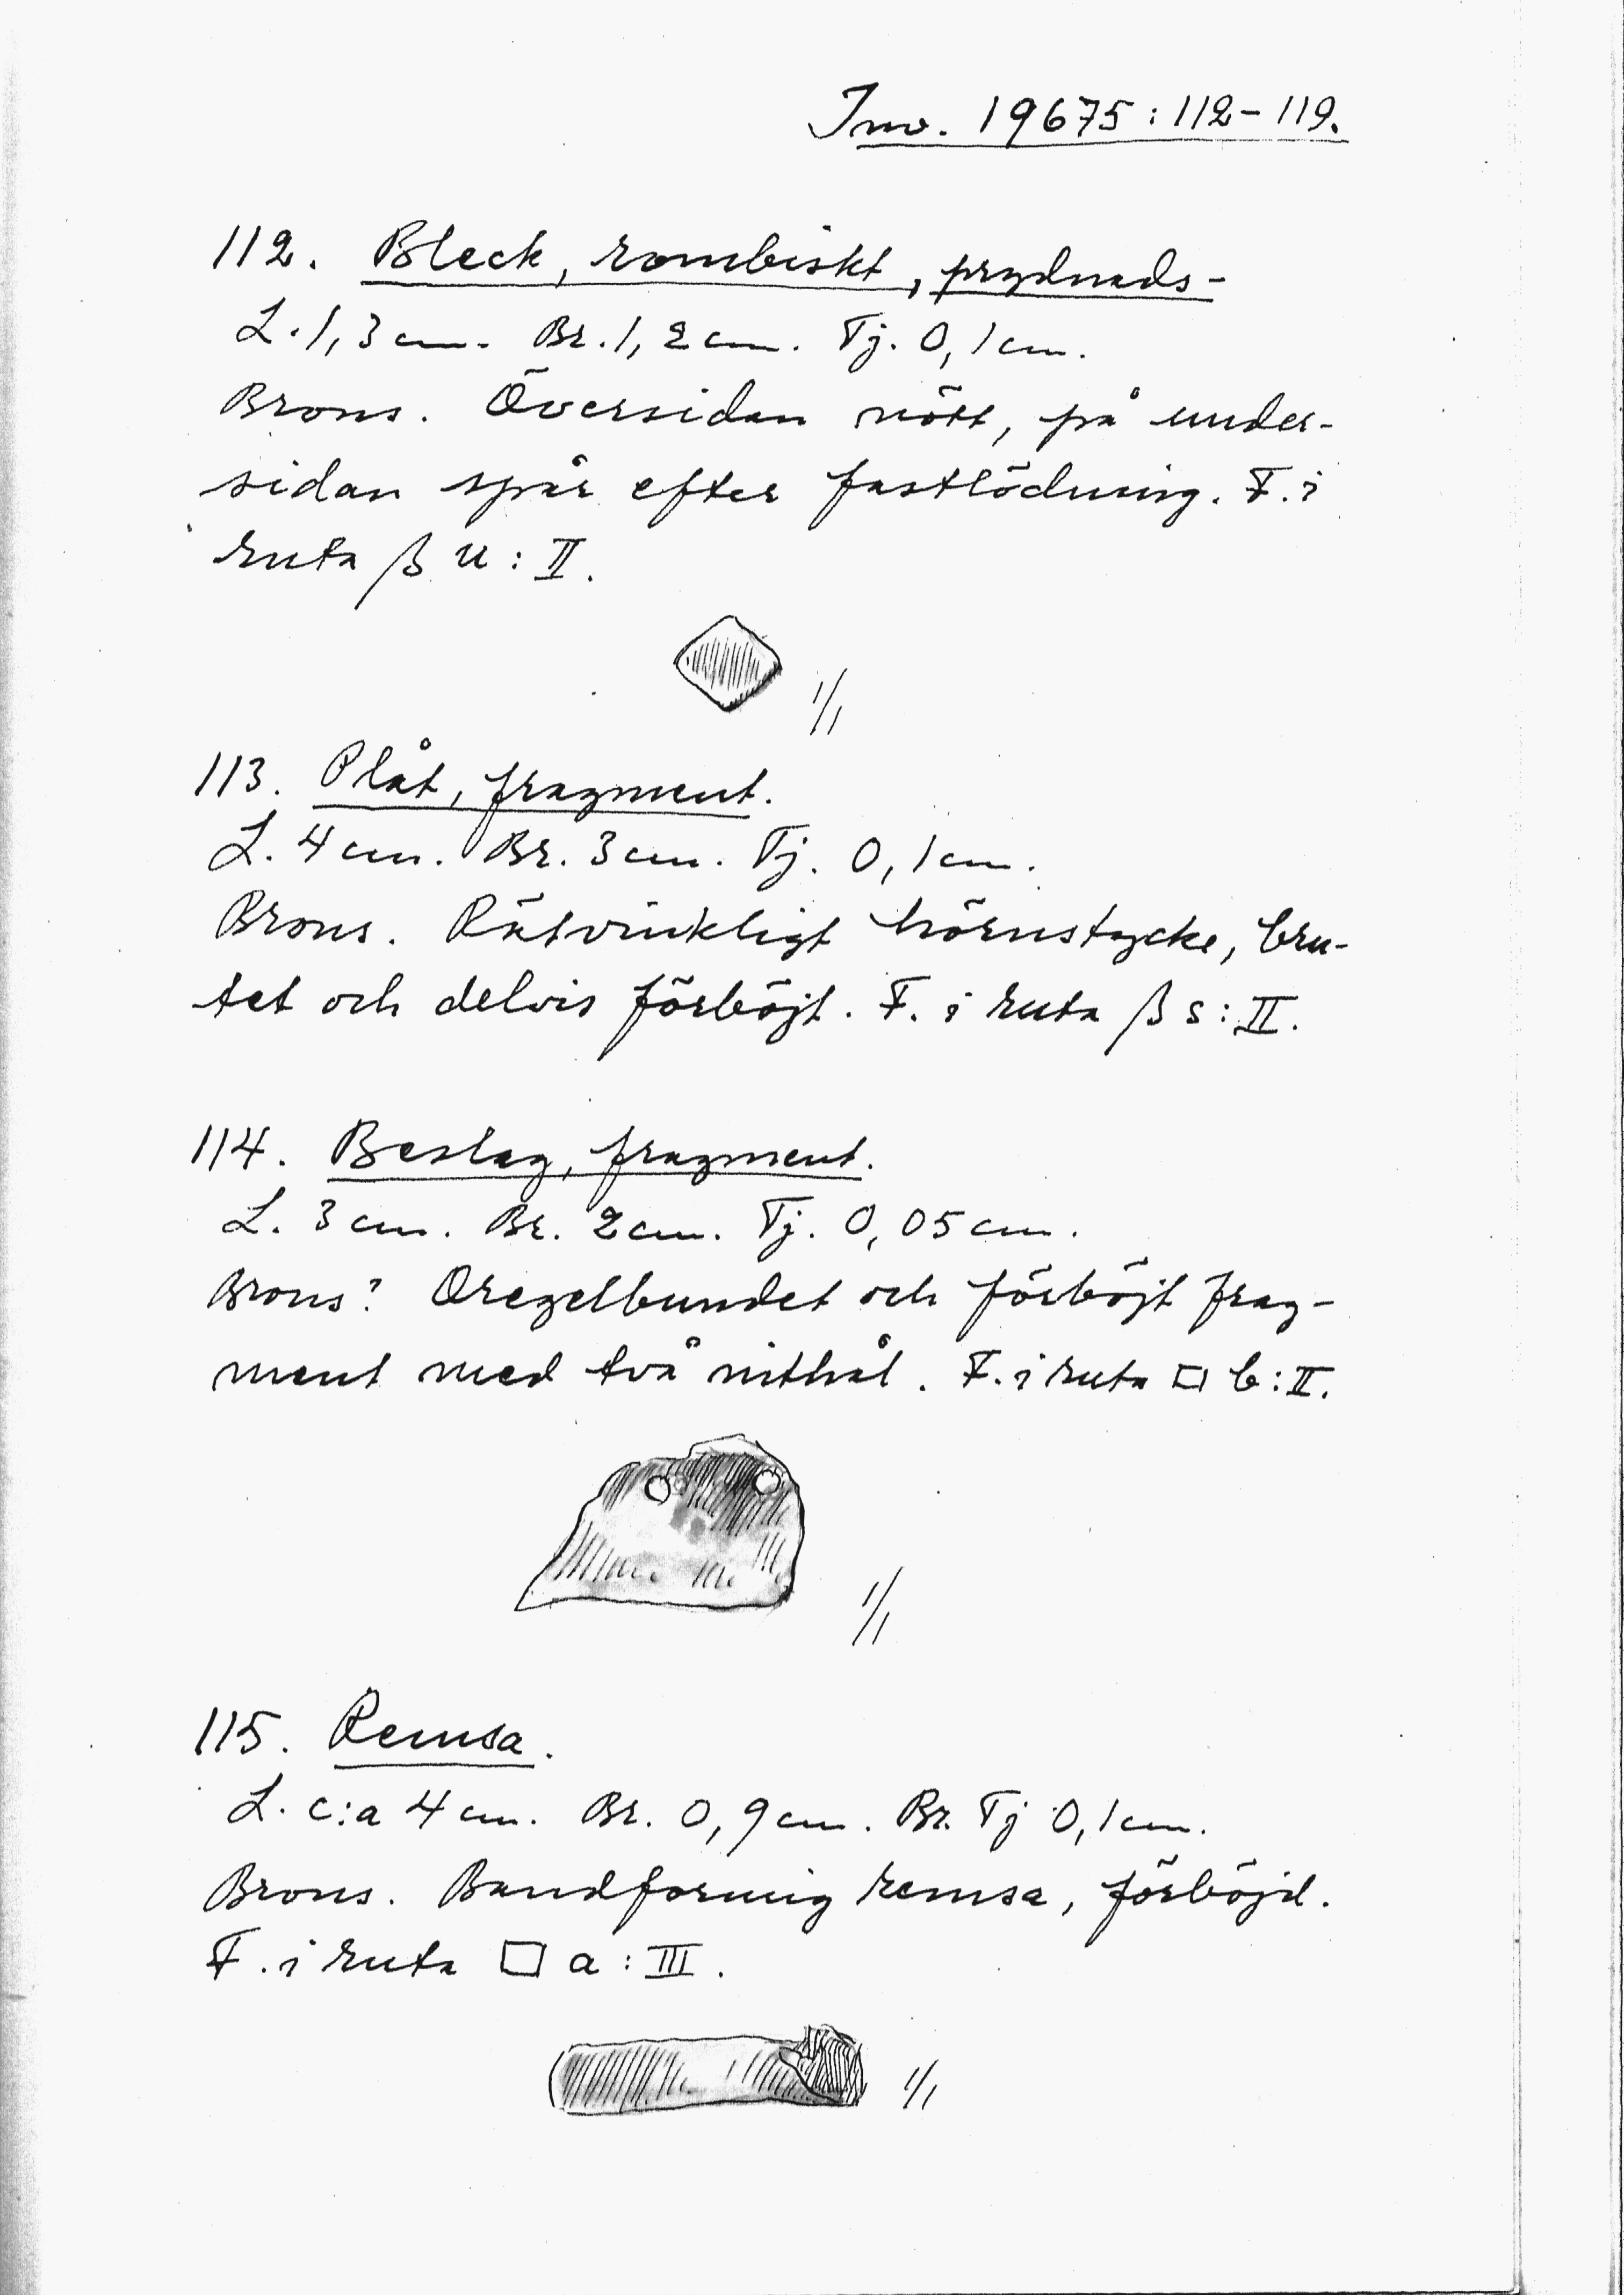 Inv. 19675:112-119.
112. Bleck, rombiskt, prydnads-
L. 1,3 cm. Br. 1,2 cm. Tj. 0,1 cm.
Brons. Översidan nött, på under-
sidan spår efter fastlödning. F. i
ruta β u: II.
1/1
113. Plåt, fragment.
L. 4 cm. Br. 3 cm. Tj. 0,1 cm.
Brons. Rätvinkligt hörnstycke, bru-
tet och delvis förböjt. F. i ruta β s: II.
114. Beslag, fragment.
L. 3 cm. Br. 2 cm. Tj. 0,05 cm.
Brons? Oregelbundet och förböjt frag-
ment med två nithål. F. i ruta □ b: II.
1/1
115. Remsa.
L. c:a 4 cm. Br. 0,9 cm. Br. Tj 0,1 cm.
Brons. Bandformig remsa, förböjd.
F. i ruta □ a: III.
1/1